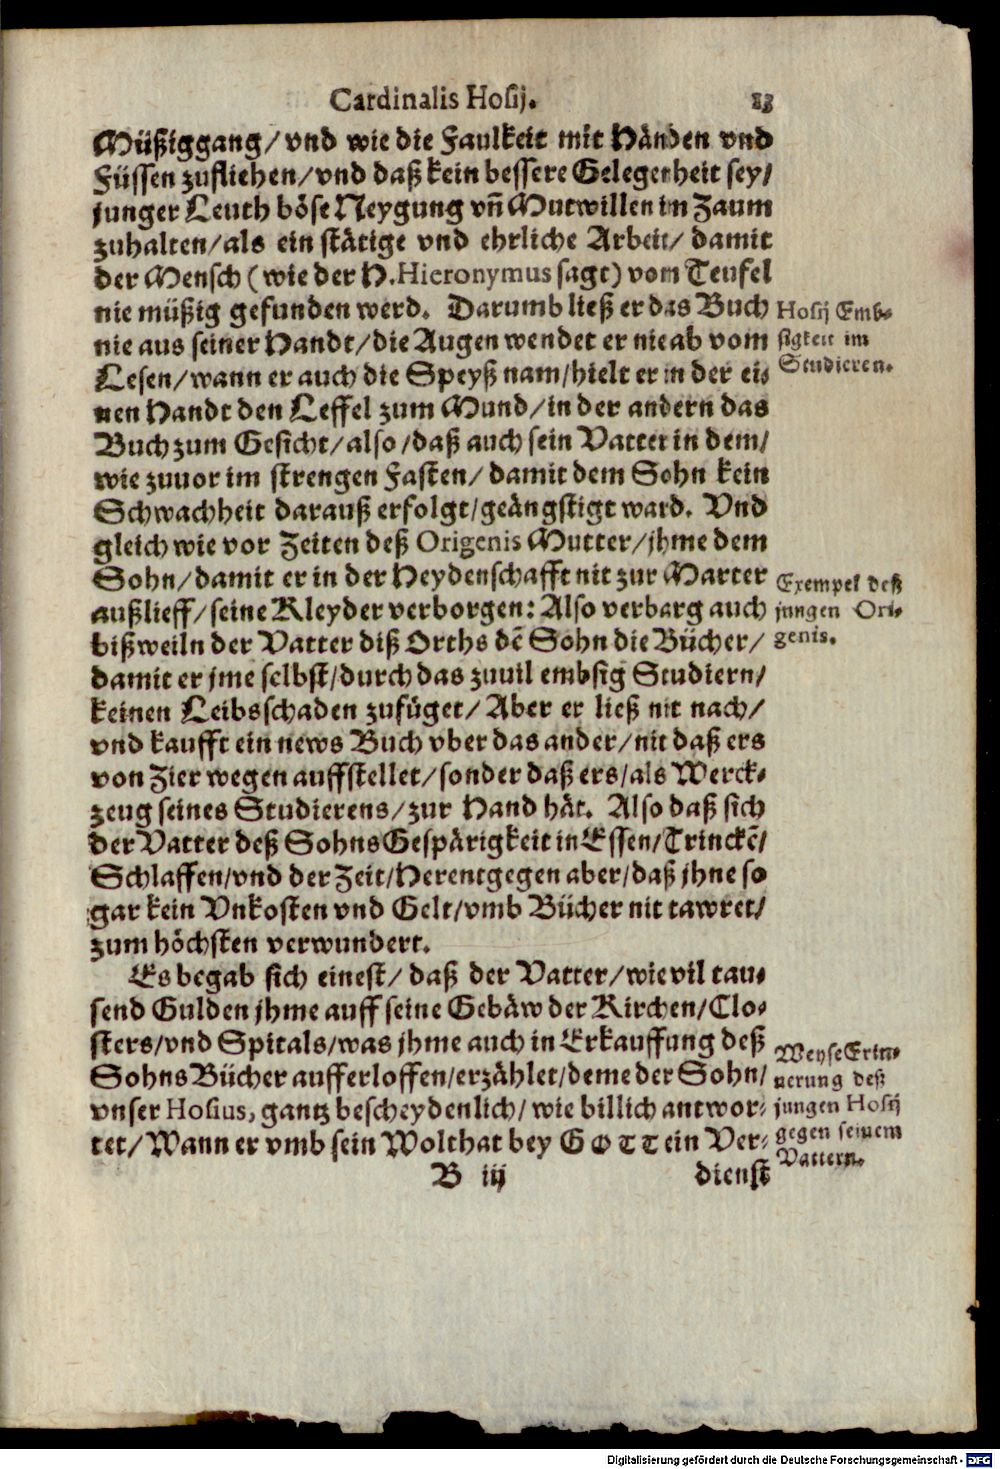 Cardinalis Hosij. 13
Müßiggang/ vnd wie die Faulkeit mit Händen vnd
Füssen zufliehen/ vnd daß kein bessere Gelegenheit sey/
junger Leuth böse Neygung vñ Mutwillen im Zaum
zuhalten/ als ein stätige vnd ehrliche Arbeit/ damit
der Mensch (wie der H. Hieronymus sagt) vom Teufel
nie müßig gefunden werd. Darumb ließ er das Buch
nie aus seiner Handt/ die Augen wendet er nie ab vom
Lesen/ wann er auch die Speyß nam/ hielt er in der ei-
nen Handt den Leffel zum Mund/ in der andern das
Buch zum Gesicht/ also/ daß auch sein Vatter in dem/
wie zuuor im strengen Fasten/ damit dem Sohn kein
Schwachheit darauß erfolgt/ geängstigt ward. Vnd
gleich wie vor Zeiten deß Origenis Mutter/ jhme dem
Sohn/ damit er in der Heydenschafft nit zur Marter
außlieff/ seine Kleyder verborgen: Also verbarg auch
bißweiln der Vatter diß Orths dẽ Sohn die Bücher/
damit er jme selbst/ durch das zuuil embsig Studiern/
keinen Leibsschaden zufüget/ Aber er ließ nit nach/
vnd kaufft ein news Buch vber das ander/ nit daß ers
von Zier wegen auffstellet/ sonder daß ers/ als Werck-
zeug seines Studierens/ zur Hand hät. Also daß sich
der Vatter deß Sohns Gespärigkeit in Essen/ Trinckẽ/
Schlaffen/ vnd der Zeit/ Herentgegen aber/ daß jhne so
gar kein Vnkosten vnd Gelt/ vmb Bücher nit tawret/
zum höchsten verwundert.
Es begab sich einest/ daß der Vatter/ wie vil tau-
send Gulden jhme auff seine Gebäw der Kirchen/ Clo-
sters/ vnd Spitals/ was jhme auch in Erkauffung deß
Sohns Bücher aufferloffen/ erzählet/ deme der Sohn/
vnser Hosius, gantz bescheydenlich/ wie billich antwor-
tet/ Wann er vmb sein Wolthat bey GOTT ein Ver-
B iij dienst
Hosij Emb-
sigkeit im
Studieren.
Exempel deß
jungen Ori-
genis.
Weyse Erin-
nerung deß
jungen Hosij
gegen seinem
Vattern.
Digitalisierung gefördert durch die Deutsche Forschungsgemeinschaft - DFG